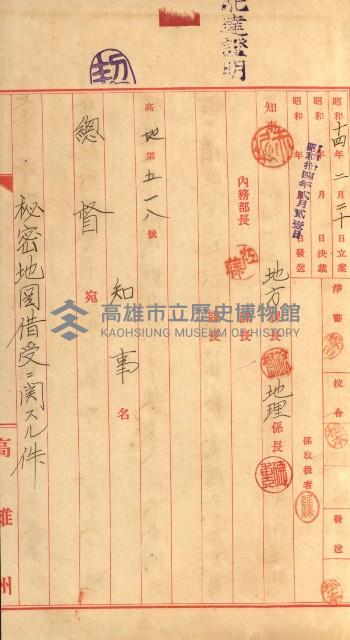 配達證明
昭和十四年二月二十日立案
昭和 年 月 日決裁
昭和 年 月 日發送
昭和拾四年貳月貳壹日
淨書
校合
發送
知事
內務部長
地方課長
課長
課長
地理係長
係取扱者
高地第五一八號
知事名
總督宛
秘密地圖借受ニ関スル件
高雄州
高雄市立歷史博物館
KAOHSIUNG MUSEUM OF HISTORY